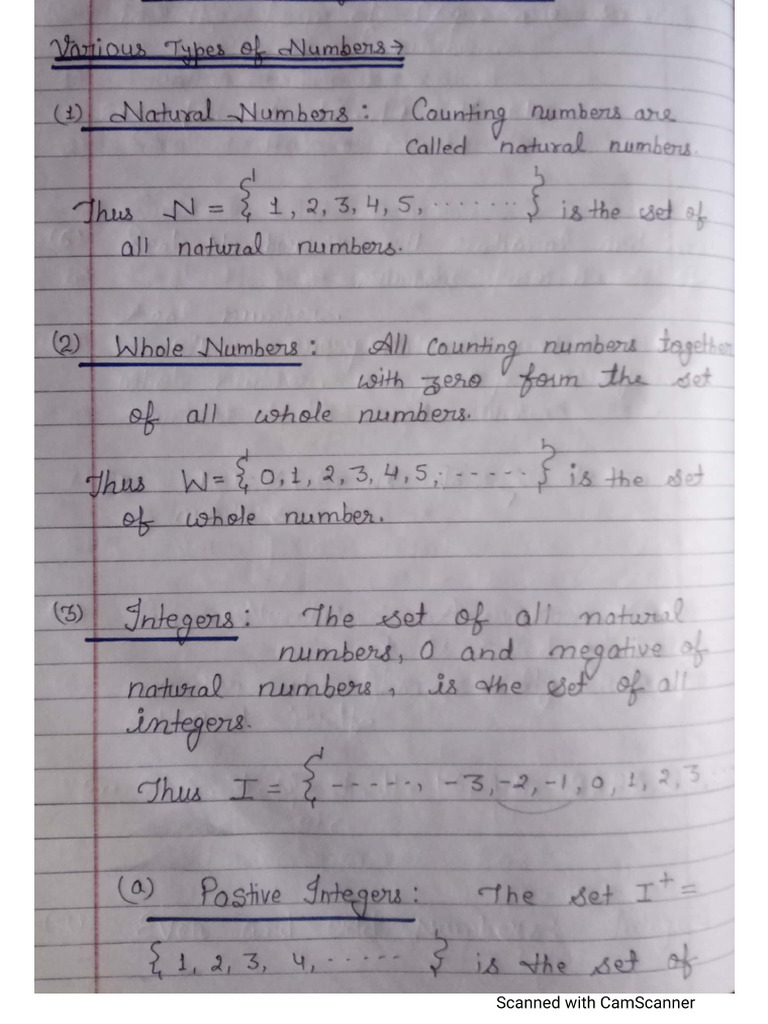 Various Types of Numbers→
(1) Natural Numbers : Counting numbers are
called natural numbers.
Thus N = { 1, 2, 3, 4, 5, ........ } is the set of
all natural numbers.
(2) Whole Numbers : All counting numbers together
with zero form the set
of all whole numbers.
Thus W = { 0, 1, 2, 3, 4, 5, ----- } is the set
of whole number.
(3) Integers : The set of all natural
numbers, 0 and negative of
natural numbers, is the set of all
integers.
Thus I = { -----, -3, -2, -1, 0, 1, 2, 3
(a) Postive Integers : The set I⁺ =
{ 1, 2, 3, 4, ...... } is the set of
Scanned with CamScanner